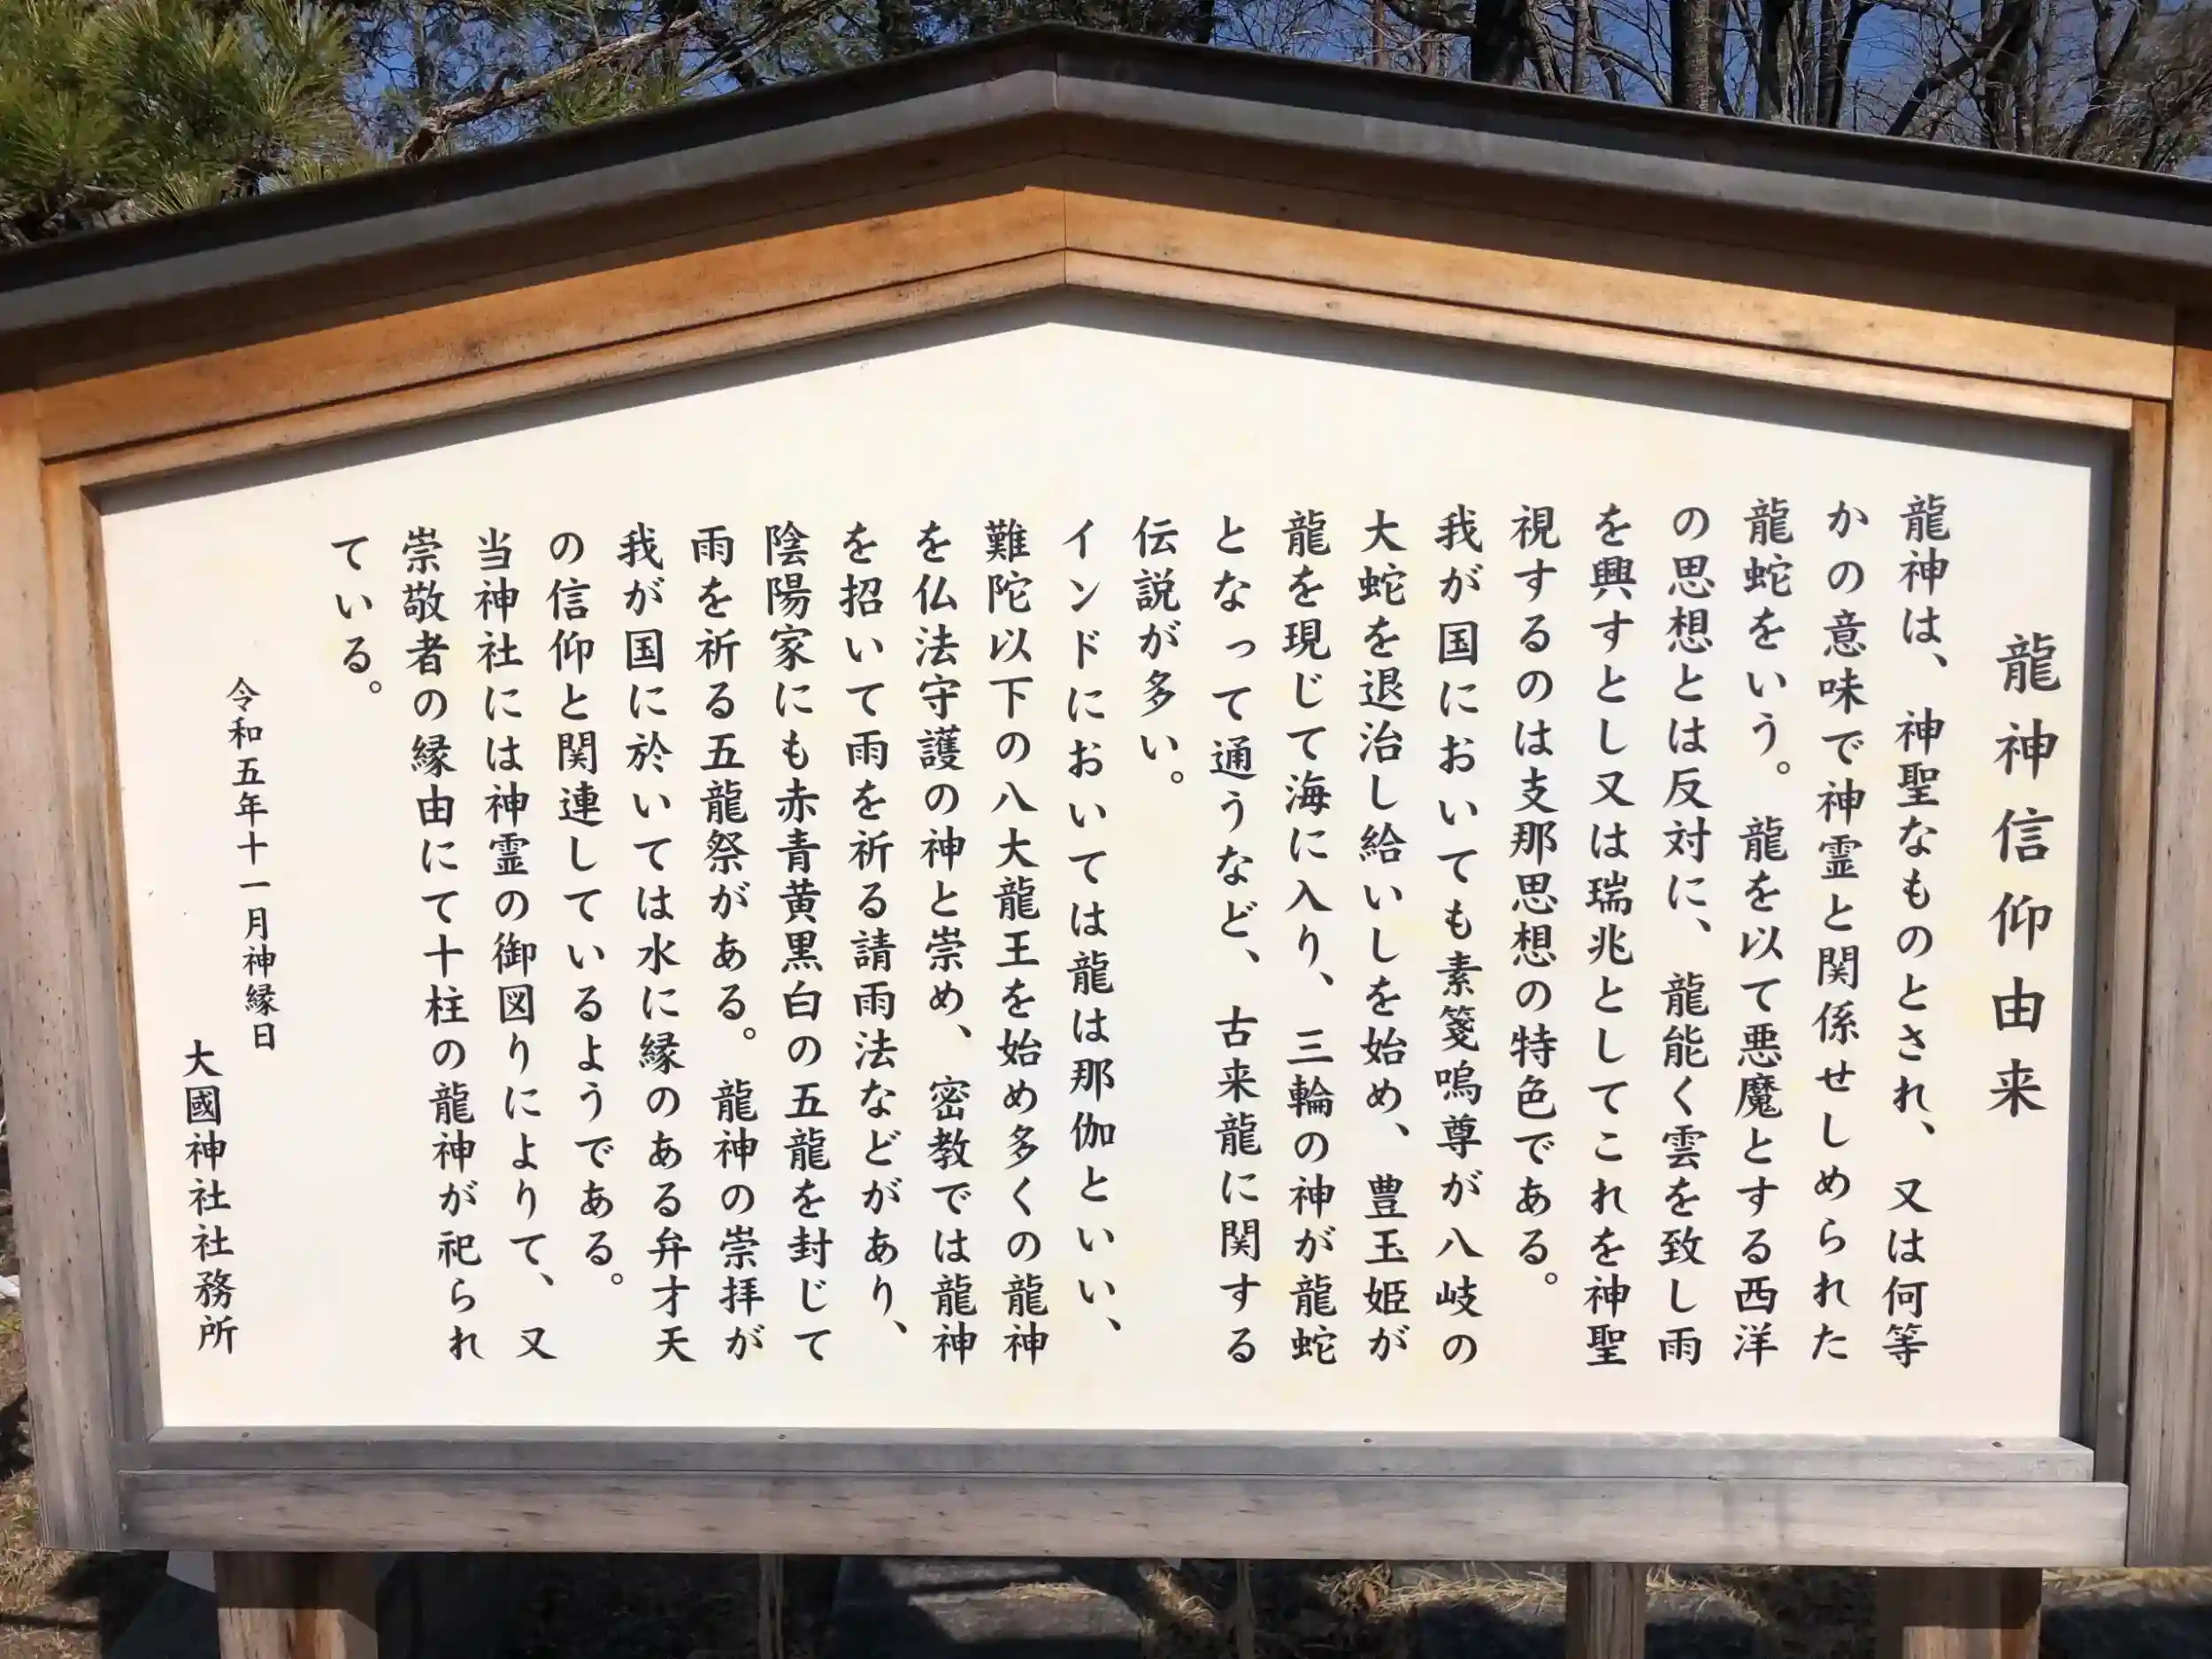 龍神信仰由来
龍神は、神聖なものとされ、又は何等
かの意味で神霊と関係せしめられた
龍蛇をいう。龍を以て悪魔とする西洋
の思想とは反対に、龍能く雲を致し雨
を興すとし又は瑞兆としてこれを神聖
視するのは支那思想の特色である。
我が国においても素箋嗚尊が八岐の
大蛇を退治し給いしを始め、豊玉姫が
龍を現じて海に入り、三輪の神が龍蛇
となって通うなど、古来龍に関する
伝説が多い。
インドにおいては龍は那伽といい、
難陀以下の八大龍王を始め多くの龍神
を仏法守護の神と崇め、密教では龍神
を招いて雨を祈る請雨法などがあり、
陰陽家にも赤青黄黒白の五龍を封じて
雨を祈る五龍祭がある。龍神の崇拝が
我が国に於いては水に縁のある弁才天
の信仰と関連しているようである。
当神社には神霊の御図りによりて、又
崇敬者の縁由にて十柱の龍神が祀られ
ている。
令和五年十一月神縁日
大國神社社務所